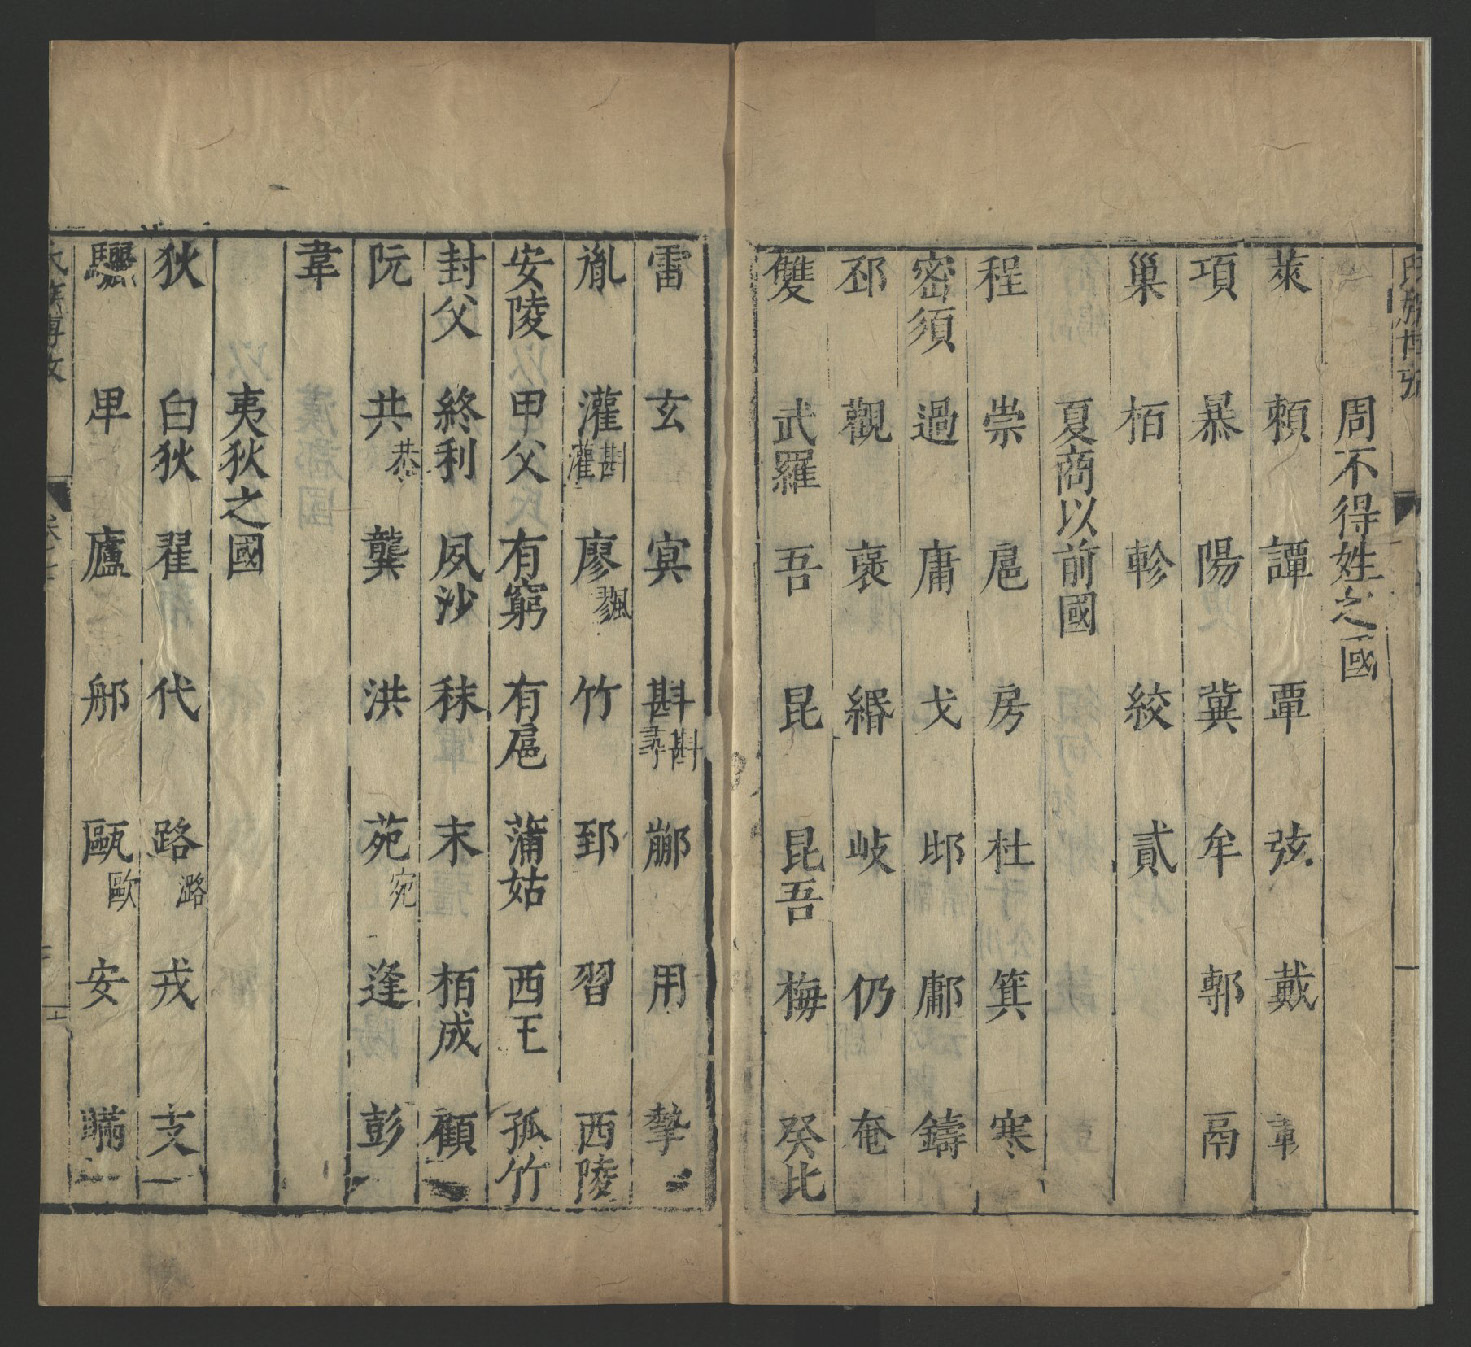 氏族博攷
周不得姓之國
萊 賴 譚 覃 弦 戴 韋
項 暴 陽 冀 牟 鄣 鬲
巢 栢 軫 絞 貳
夏商以前國
程 崇 扈 房 杜 箕 寒
密須 過 庸 戈 邶 鄘 鑄
邳 觀 褒 緡 岐 仍 奄
雙 武羅 吾 昆 昆吾 梅 癸比
雷 玄 㝠 斟 斟尋 鄘 用 摯
胤 灌 斟灌 廖 飂 竹 郅 習 西陵
安陵 甲父 有窮 有扈 蒲姑 西王 孤竹
封父 終利 夙沙 秣 末 栢成 顧
阮 共 恭 龔 洪 苑 宛 逄 彭
韋
夷狄之國
狄 白狄 翟 代 路 潞 戎 支
驪 甲 廬 郍 甌 歐 安 瞞